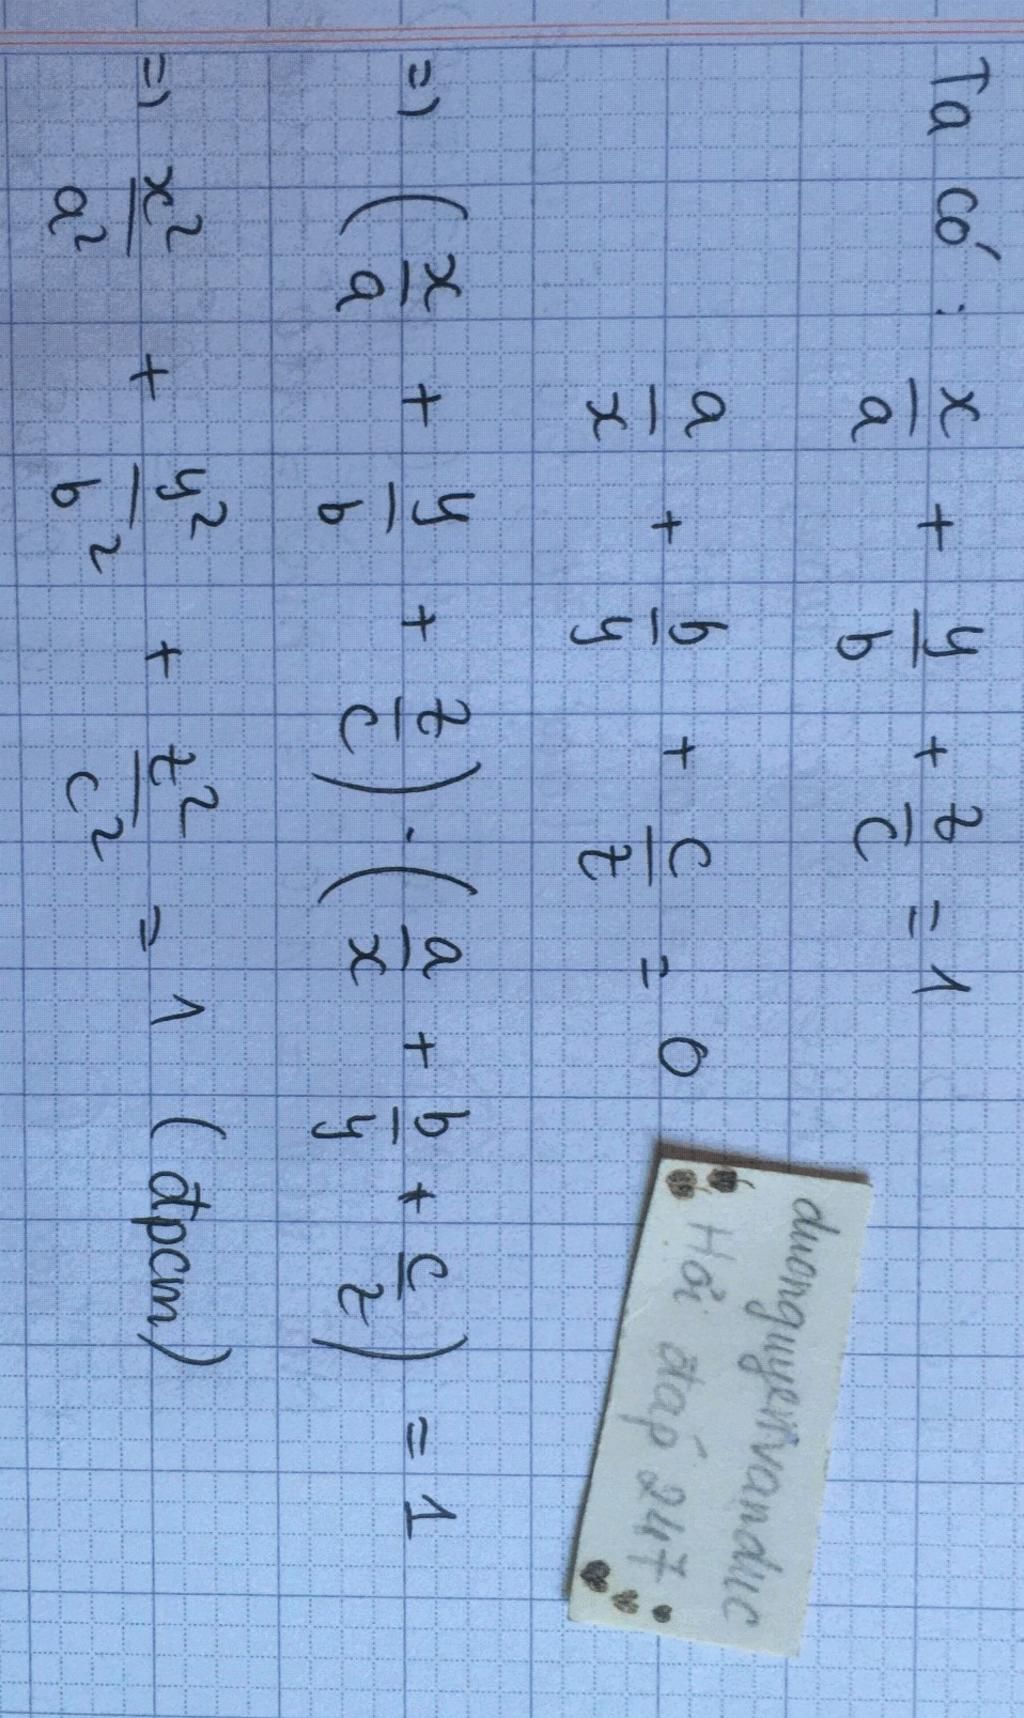 Ta có: x/a + y/b + z/c = 1
a/x + b/y + c/z = 0
=> (x/a + y/b + z/c) . (a/x + b/y + c/z) = 1
=> x²/a² + y²/b² + z²/c² = 1 (đpcm)
duonguyenvanduc
Hỏi đáp 247